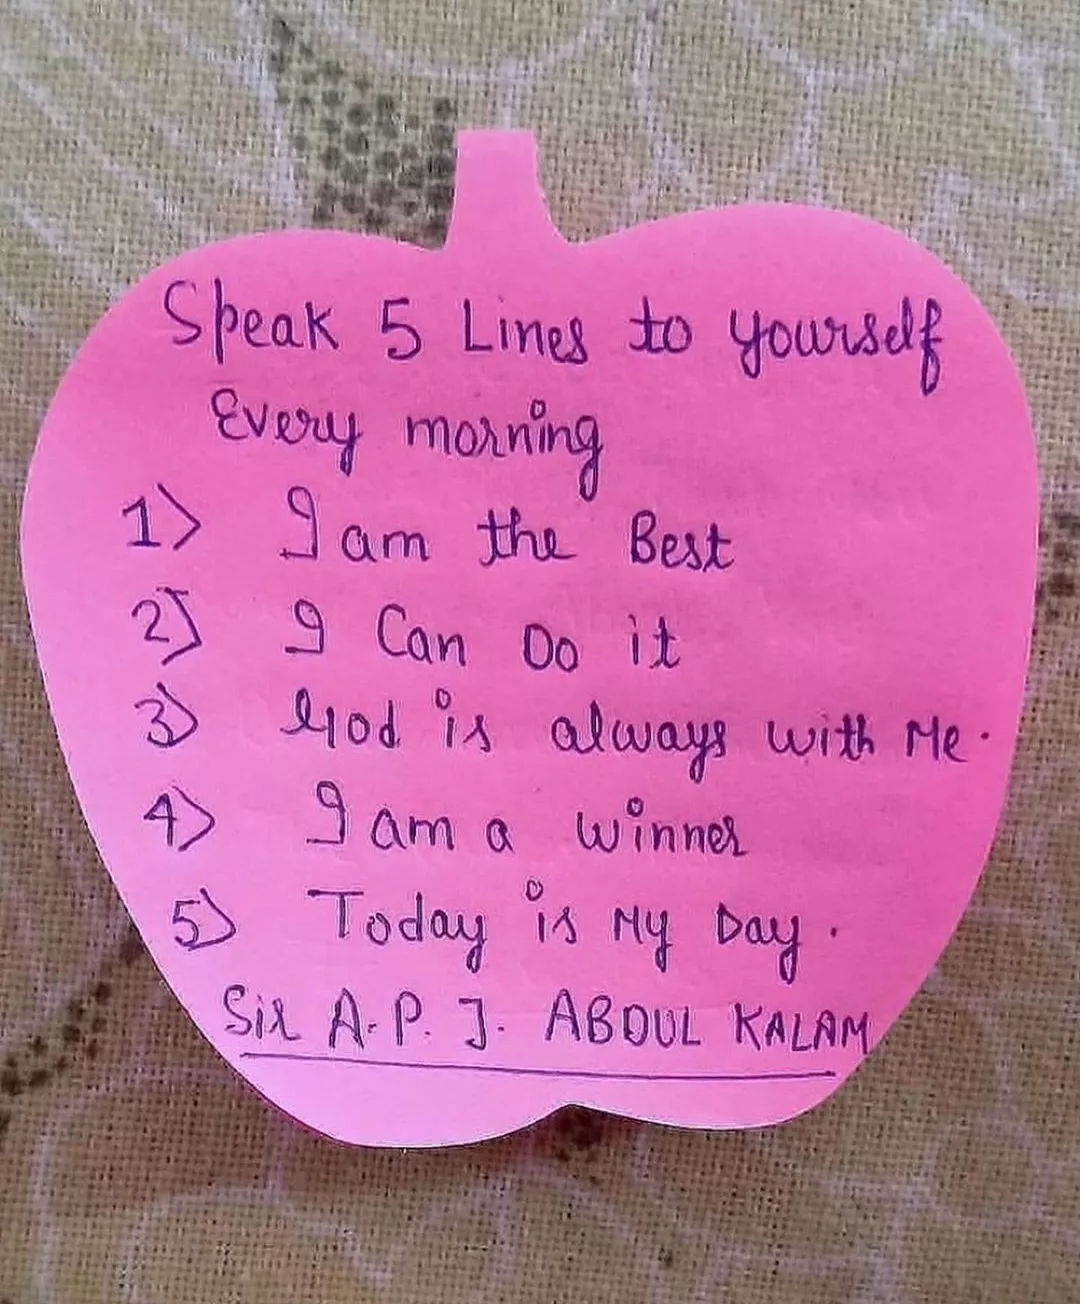 Speak 5 Lines to yourself
Every morning
1) I am the Best
2) I Can Do it
3) God is always with Me.
4) I am a winner
5) Today is My Day.
Sir A. P. J. ABDUL KALAM